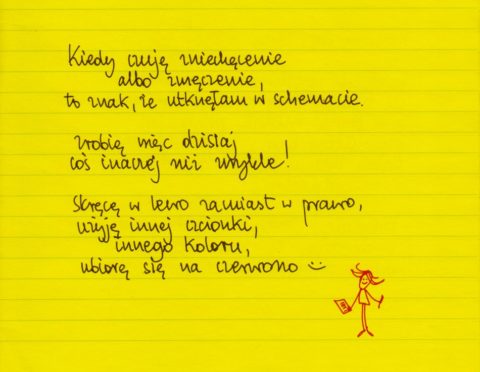 Kiedy czuję zniechęcenie
albo zmęczenie,
to znak, że utknęłam w schemacie.
zrobię więc dzisiaj
coś inaczej niż zwykle!
Skręcę w lewo zamiast w prawo,
użyję innej czcionki,
innego koloru,
ubiorę się na czerwono